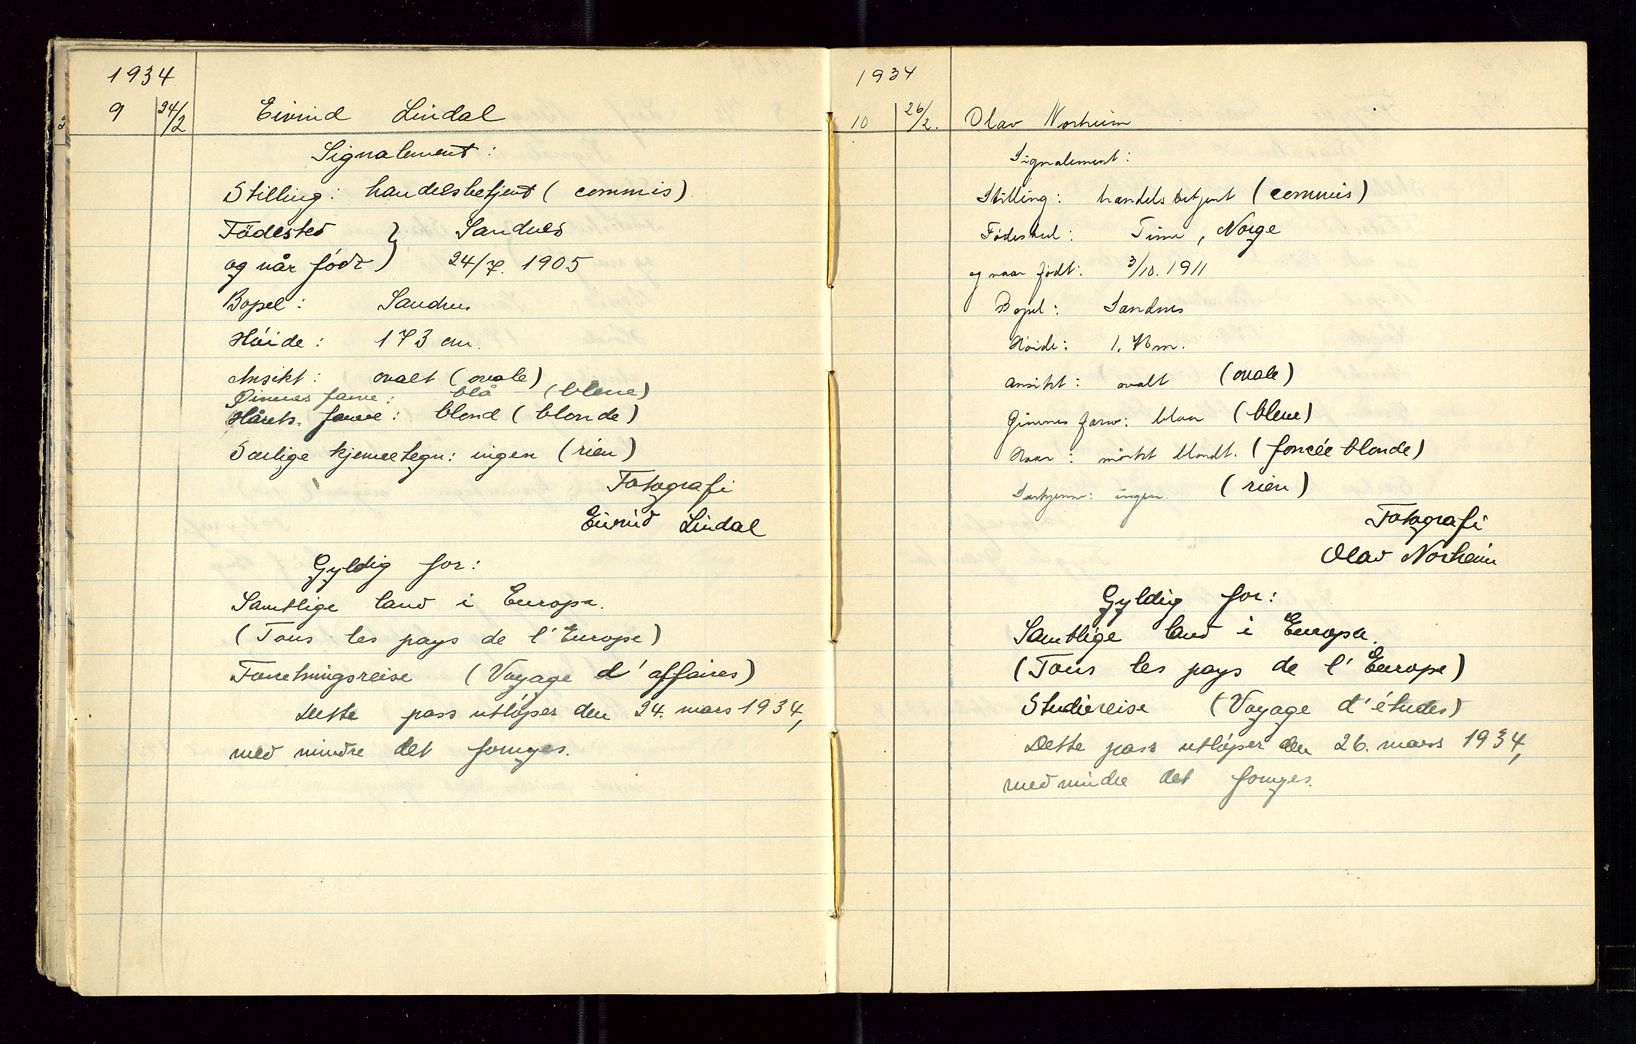 1934
9 24/2 Eivind Lindal
Signalement:
Stilling: handelsbetjent (commis)
Födested } Sandnes
og når född } 24/7. 1905
Bopel: Sandnes
Höide: 173 cm.
Ansikt: ovalt (ovale)
Öinnes farve: blå (bleue)
Hårets farve: blond (blonde)
Særlige kjennetegn: ingen (rien)
Fotografi
Eivind Lindal
Gyldig for:
Samtlige land i Europa.
(Tous les pays de l'Europe)
Forretningsreise (Voyage d'affaires)
Dette pass utlöper den 24. mars 1934,
med mindre det fornyes.
1934
10 26/2. Olav Norheim
Signalement:
Stilling: handelsbetjent (commis)
Födested: Time, Norge
og naar födt: 3/10. 1911
Bopel: Sandnes
Höide: 1.78 m.
Ansikt: ovalt (ovale)
Öinnes farv: blaa (bleue)
Haar: mörkt blondt. (foncée blonde)
Særkjenn: ingen (rien)
Fotografi
Olav Norheim
Gyldig for:
Samtlige land i Europa.
(Tous les pays de l'Europe)
Studiereise (Voyage d'études)
Dette pass utlöper den 26. mars 1934,
med mindre det fornyes.